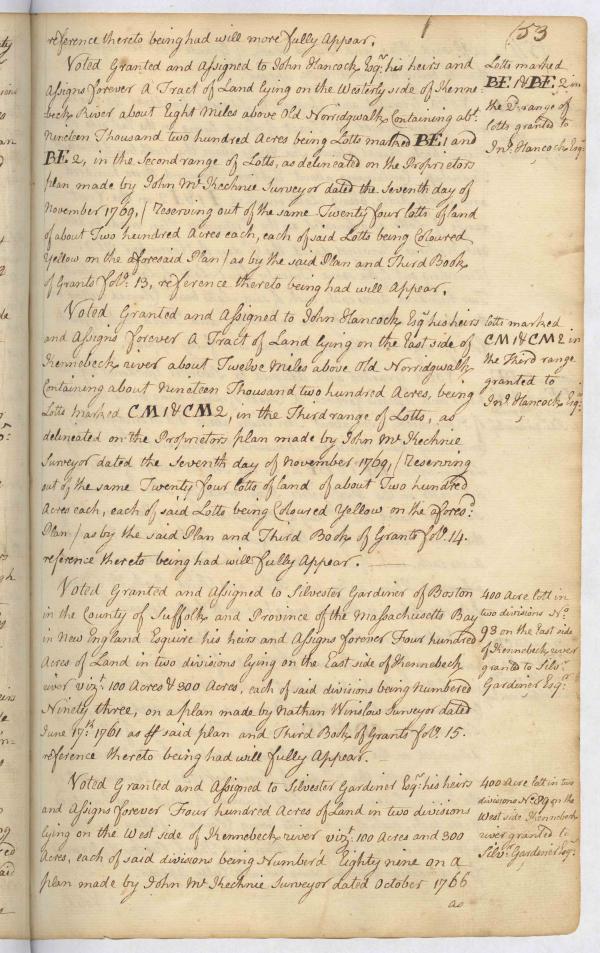 53
reference thereto being had will more fully Appear.
Voted Granted and Assigned to John Hancock Esqr. his heirs and
Assigns forever A Tract of Land lying on the Westerly side of Kenne-
beck River about Eight Miles above Old Norridgwalk Containing abt.
Nineteen Thousand two hundred Acres being Lotts marked BE 1 and
BE 2, in the Second range of Lotts, as delineated on the Proprietors
plan made by John Mc. Kechnie Surveyor dated the Seventh day of
November 1769, / Reserving out of the same Twenty four lotts of land
of about Two hundred Acres each, each of said Lotts being Coloured
Yellow on the aforesaid Plan / as by the said Plan and Third Book
of Grants folo. 13, reference thereto being had will Appear.
Lotts marked
BE 1 & BE 2 in
the 2d. range of
lotts granted to
Jno. Hancock Esqr.
Voted Granted and Assigned to John Hancock Esqr. his heirs
and Assigns forever A Tract of Land lying on the East side of
Kennebeck river about Twelve Miles above Old Norridgwalk
Containing about Nineteen Thousand two hundred Acres, being
Lotts marked CM 1 & CM 2, in the Third range of Lotts, as
delineated on the Proprietors plan made by John Mc. Kechnie
Surveyor dated the Seventh day of November 1769, / Reserving
out of the same Twenty four lotts of land of about Two hundred
Acres each, each of said Lotts being Coloured Yellow on the aforesd.
Plan / as by the said Plan and Third Book of Grants folo. 14.
reference thereto being had will fully Appear.
lotts marked
CM 1 & CM 2 in
the Third range
granted to
Jno. Hancock Esqr.
Voted Granted and Assigned to Silvester Gardiner of Boston
in the County of Suffolk and Province of the Massachusetts Bay
in New England Esquire his heirs and Assigns forever Four hundred
Acres of Land in two divisions lying on the East side of Kennebeck
river vizt. 100 Acres & 300 Acres, each of said divisions being Numbered
Ninety three, on a plan made by Nathan Winslow Surveyor dated
June 17th. 1761 as ⅌ said plan and Third Book of Grants folo. 15.
reference thereto being had will fully Appear.
400 Acre lott in
two divisions No.
93 on the East side
of Kennebeck river
granted to Silvr.
Gardiner Esqr.
Voted Granted and Assigned to Silvester Gardiner Esqr. his heirs
and Assigns forever Four hundred Acres of Land in two divisions
lying on the West side of Kennebeck river vizt. 100 Acres and 300
Acres, each of said divisions being Numberd Eighty nine on a
plan made by John Mc. Kechnie Surveyor dated October 1766
as
400 Acre lott in two
divisions No. 89 on the
West side Kennebeck
river granted to
Silvr. Gardiner Esqr.